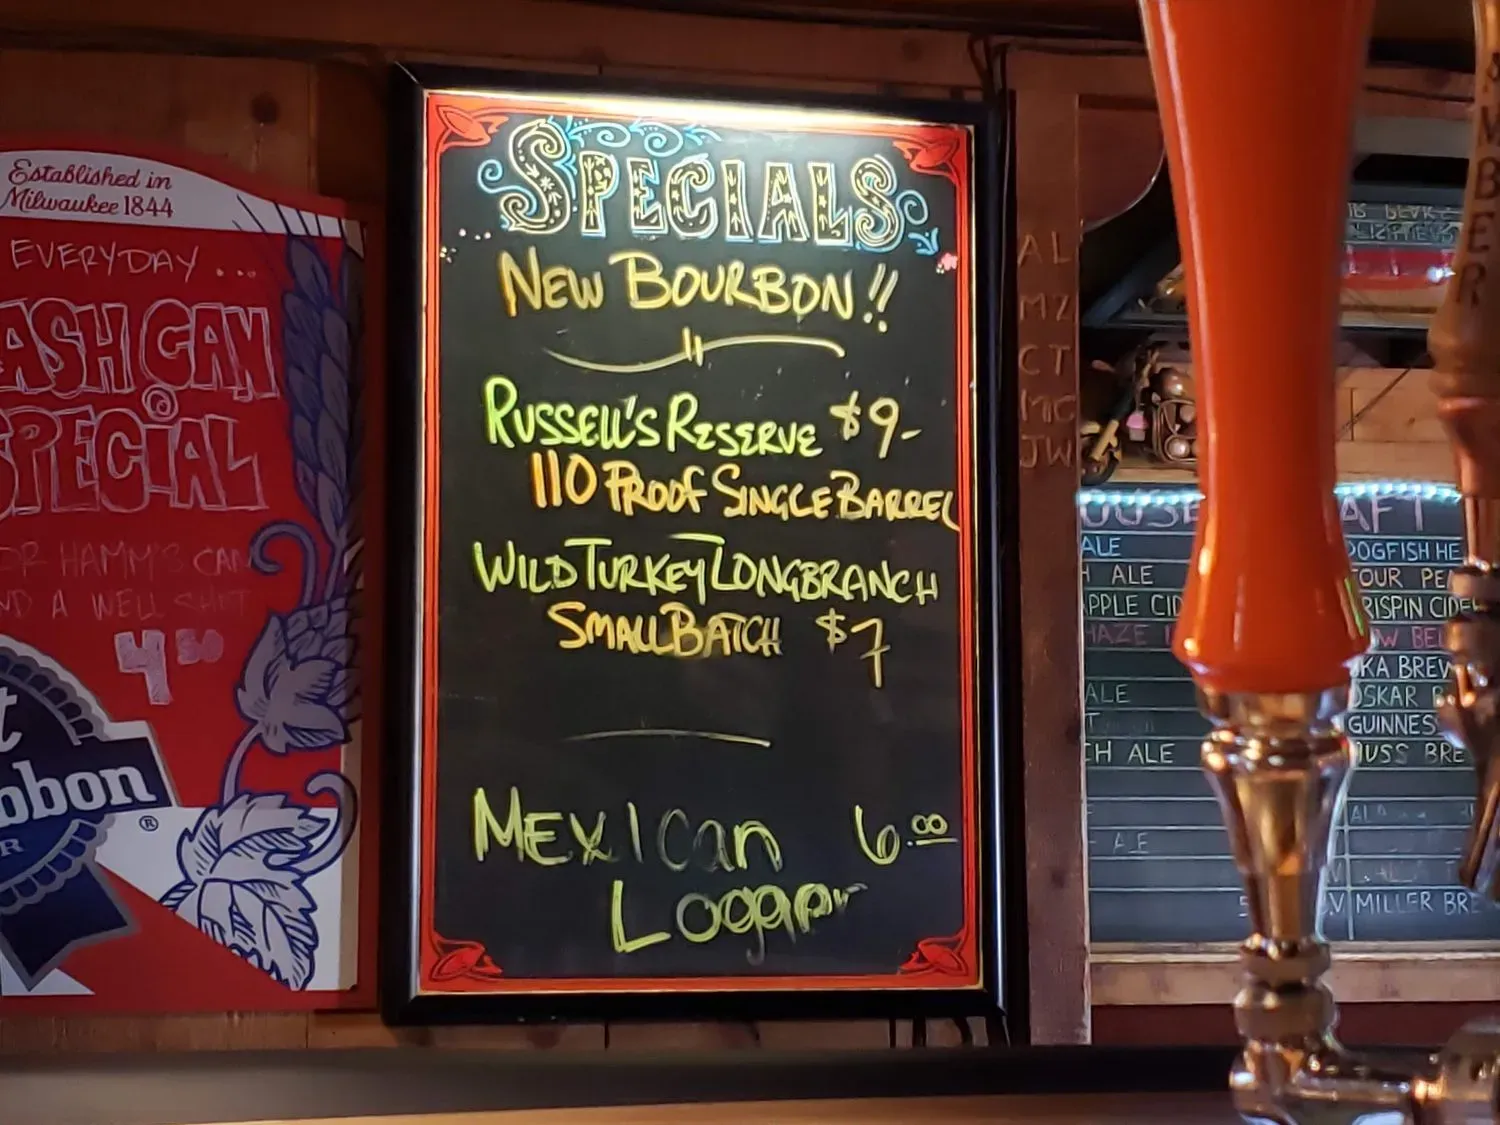 Established in
Milwaukee 1844
EVERYDAY...
ASH CAN
SPECIAL
OR HAMM'S CAN
ND A WELL SHOT
4.50
bbon
SPECIALS
NEW BOURBON!!
RUSSELL'S RESERVE $9-
110 PROOF SINGLE BARREL
WILD TURKEY LONGBRANCH
SMALL BATCH $7
MEXICan 6.00
Logger
AL
MZ
CT
MC
JW
AMBER
OUSE
AFT
ALE
DOGFISH HE
H ALE
FOUR PE
APPLE CID
RISPIN CIDE
HAZE
W BEL
KA BREW
ALE
OSKAR B
GUINNESS
CH ALE
MUSS BRE
ALE
MILLER BRE